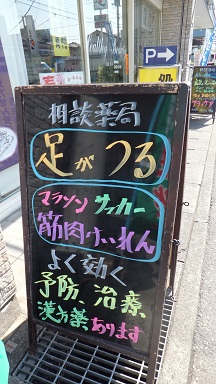 相談薬局
足がつる
マラソン サッカー
筋肉けいれん
よく効く
予防、治療
漢方薬あります
P→
処